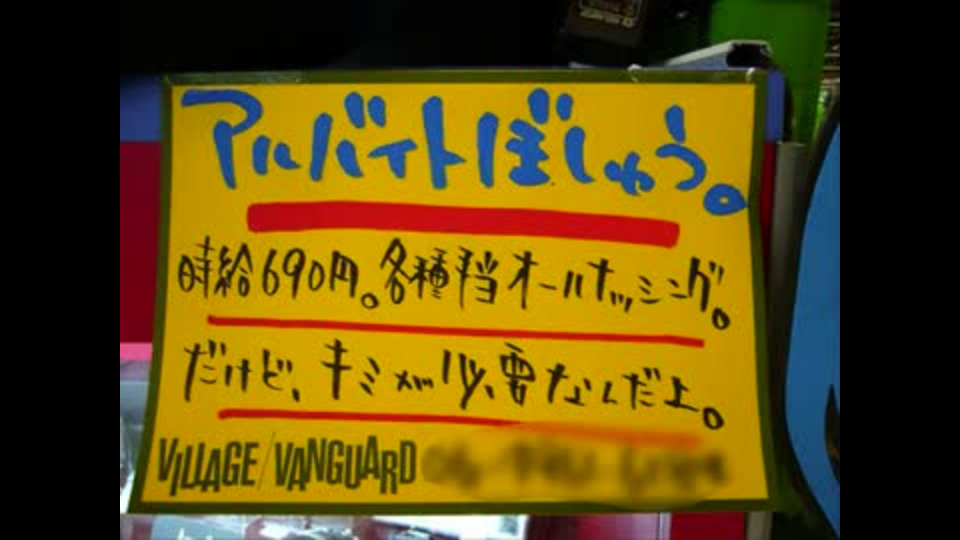 アルバイトぼしゅう。
時給690円。各種手当オールナッシング。
だけど、キミが必要なんだよ。
VILLAGE/VANGUARD